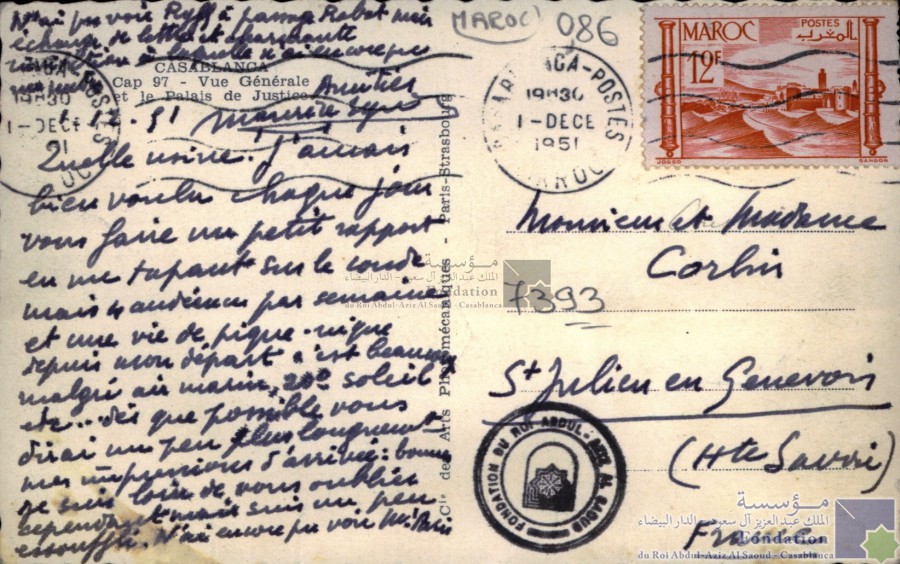 N'ai pu voir Ryff à passage Rabat mais
échangé de lettre et charmante
à laquelle n'ai encore pu
CASABLANCA
Cap 97 - Vue Générale
et le Palais de Justice
Amitiés
1-12-51
Quelle usine. J'aurais
bien voulu chaque jour
vous faire un petit rapport
en me tapant sur le coude
mais 4 audiences par semaine
et une vie de pique-nique
depuis mon départ c'est beaucoup
malgré air marin, 20° soleil
etc.. dès que possible vous
dirai un peu plus longuement
mes impressions d'arrivée: bonnes
je suis loin de vous oublier
cependant mais suis un peu
essoufflé. N'ai encore pu voir
Cie des Arts Photomécaniques - Paris-Strasbourg
MAROC
086
CASABLANCA-POSTES
19H30
1-DECE
1951
MAROC
MAROC
POSTES
المغرب
12F
Monsieur et Madame
Corbin
7393
St Julien en Genevois
(Hte Savoie)
France
FONDATION DU ROI ABDUL-AZIZ AL SAOUD
مؤسسة
الملك عبد العزيز آل سعود - الدار البيضاء
Fondation
du Roi Abdul-Aziz Al Saoud - Casablanca
مؤسسة
الملك عبد العزيز آل سعود - الدار البيضاء
Fondation
du Roi Abdul-Aziz Al Saoud - Casablanca